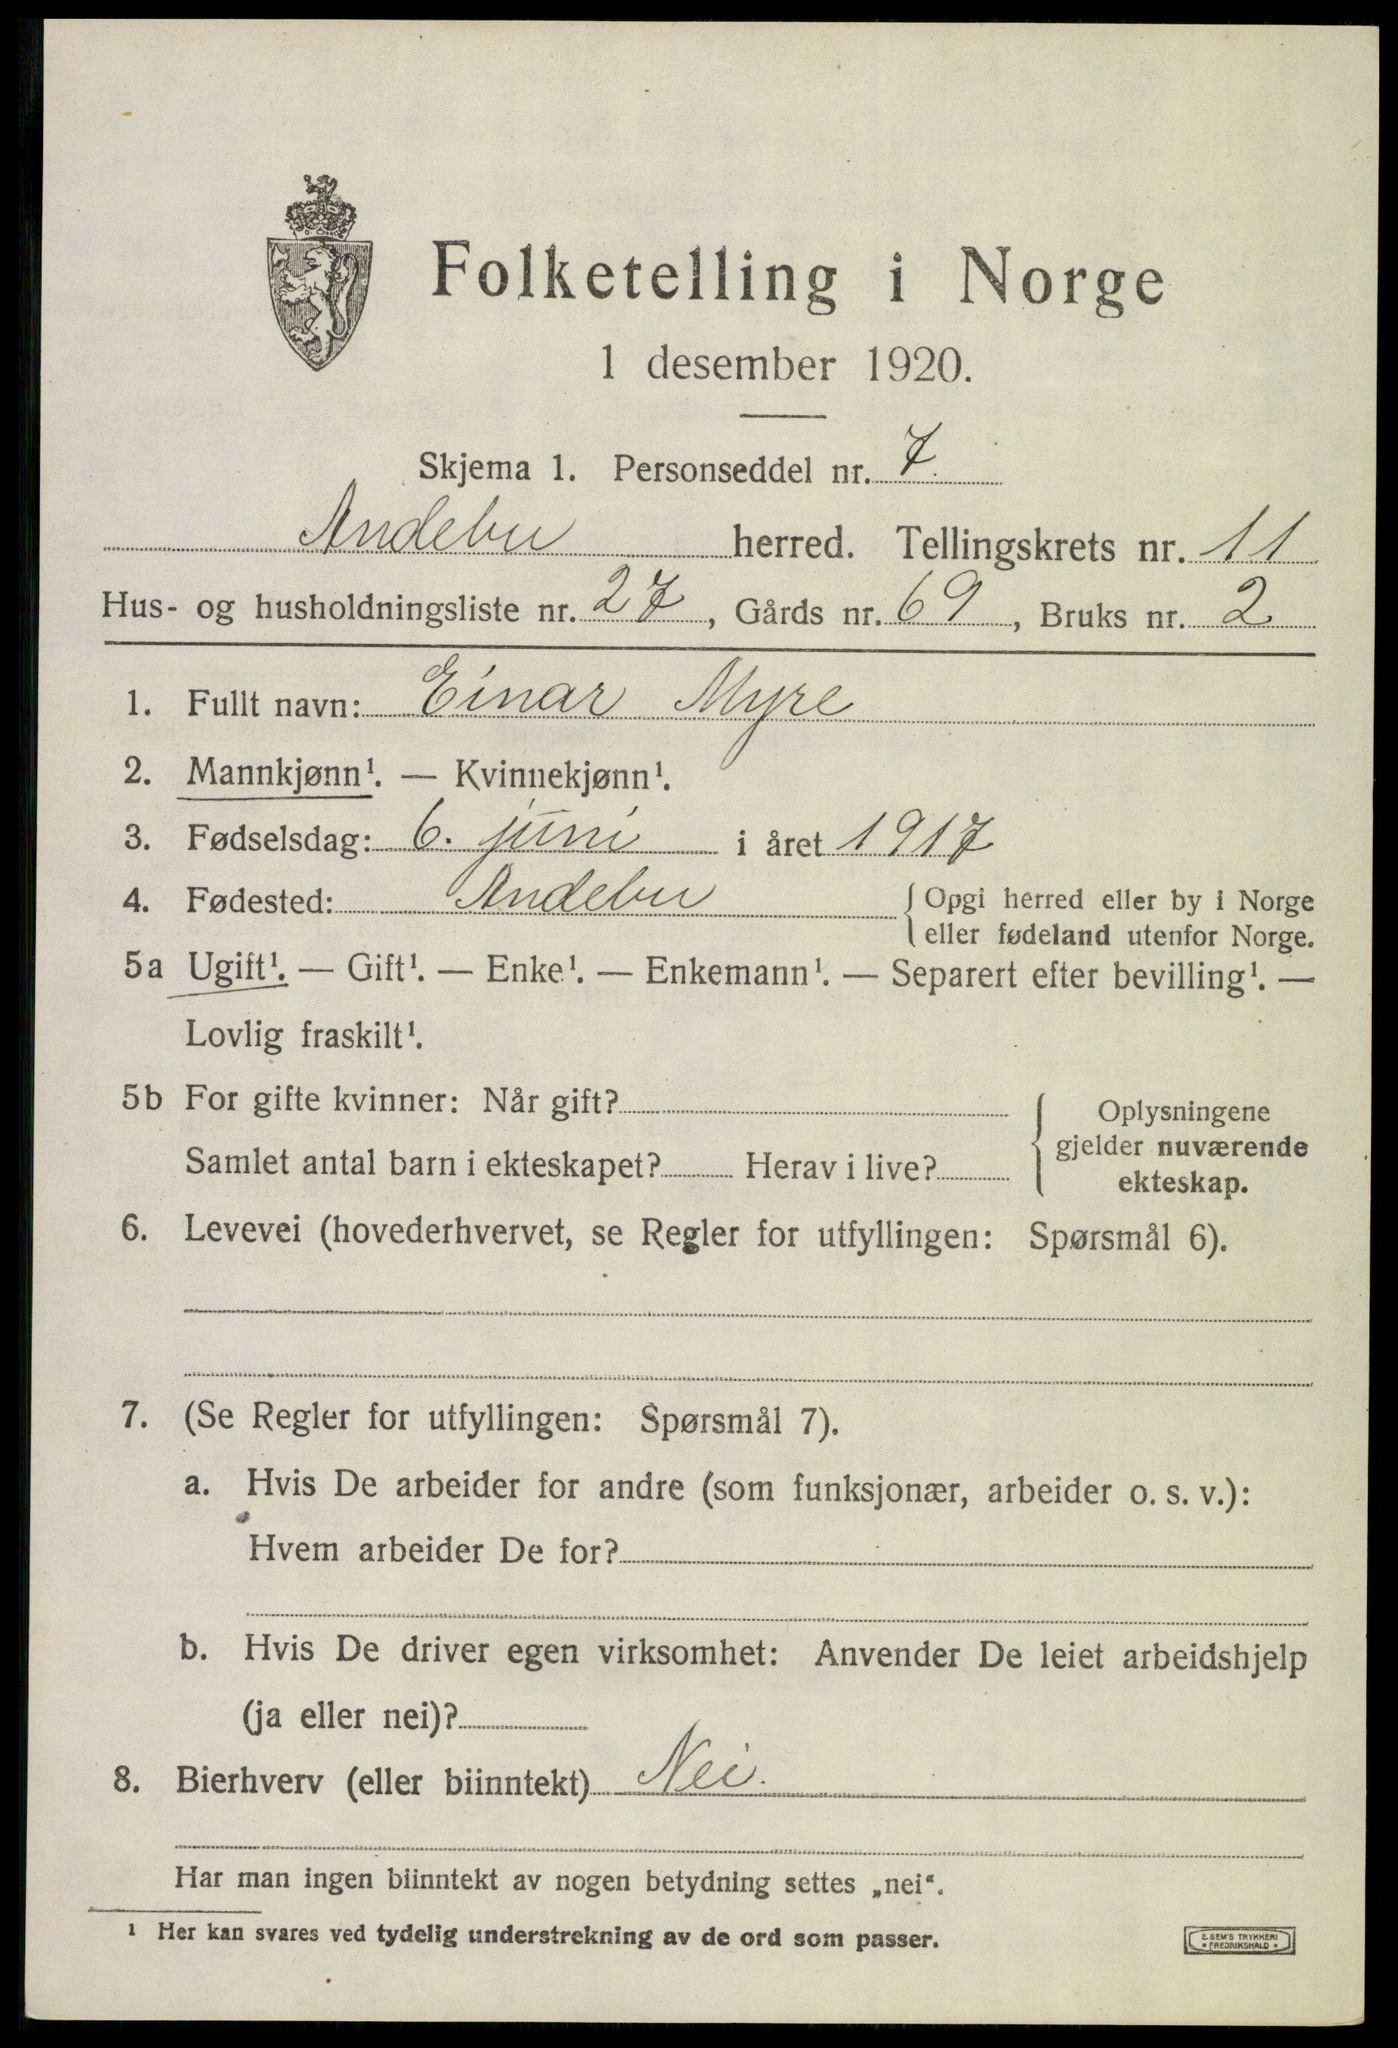 Folketelling i Norge
1 desember 1920.
Skjema 1. Personseddel nr. 7.
Andebu herred. Tellingskrets nr. 11
Hus- og husholdningsliste nr. 27, Gårds nr. 69, Bruks nr. 2
1. Fullt navn: Einar Myre
2. Mannkjønn¹. — Kvinnekjønn¹.
3. Fødselsdag: 6. juni i året 1917
4. Fødested: Andebu { Opgi herred eller by i Norge
eller fødeland utenfor Norge.
5a Ugift¹. — Gift¹. — Enke¹. — Enkemann¹. — Separert efter bevilling¹. —
Lovlig fraskilt¹.
5b For gifte kvinner: Når gift?
Samlet antal barn i ekteskapet? Herav i live?
{ Oplysningene
gjelder nuværende
ekteskap.
6. Levevei (hovederhvervet, se Regler for utfyllingen: Spørsmål 6).
7. (Se Regler for utfyllingen: Spørsmål 7).
a. Hvis De arbeider for andre (som funksjonær, arbeider o. s. v.):
Hvem arbeider De for?
b. Hvis De driver egen virksomhet: Anvender De leiet arbeidshjelp
(ja eller nei)?
8. Bierhverv (eller biinntekt) Nei.
Har man ingen biinntekt av nogen betydning settes „nei“.
¹ Her kan svares ved tydelig understrekning av de ord som passer.
E. SEM'S TRYKKERI
* FREDRIKSHALD *